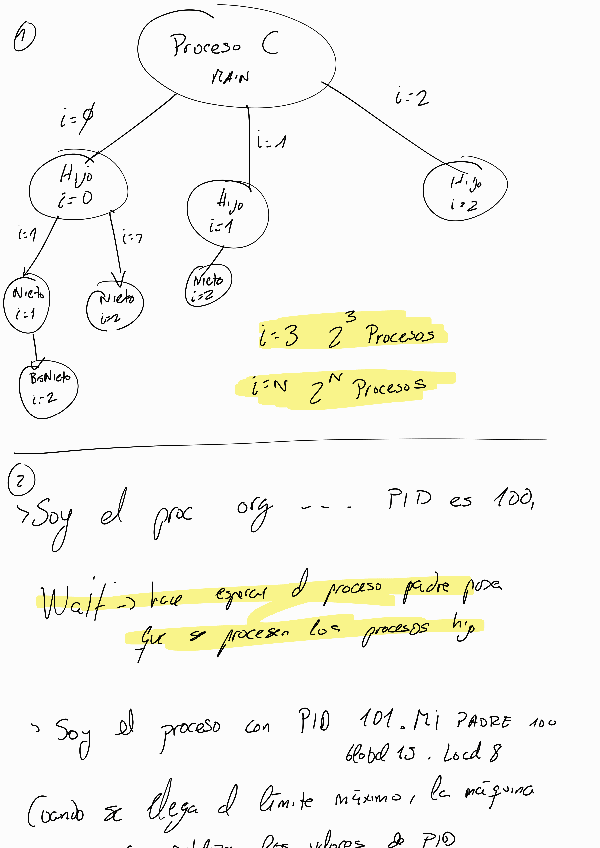 1
Proceso C
MAIN
i=∅
i=1
i=2
Hijo
i=0
Hijo
i=1
Hijo
i=2
i=1
i=1
Nieto
i=1
Nieto
i=2
Nieto
i=2
BisNieto
i=2
i=3 2³ Procesos
i=N 2ᴺ Procesos
2
>Soy el proc org --- . PID es 100,
Wait -> hace esperar el proceso padre para
que se procesen los procesos hijo
> Soy el proceso con PID 101. Mi PADRE 100
Global 15. Local 8
Cuando se llega al límite máximo, la máquina
los valores de PID